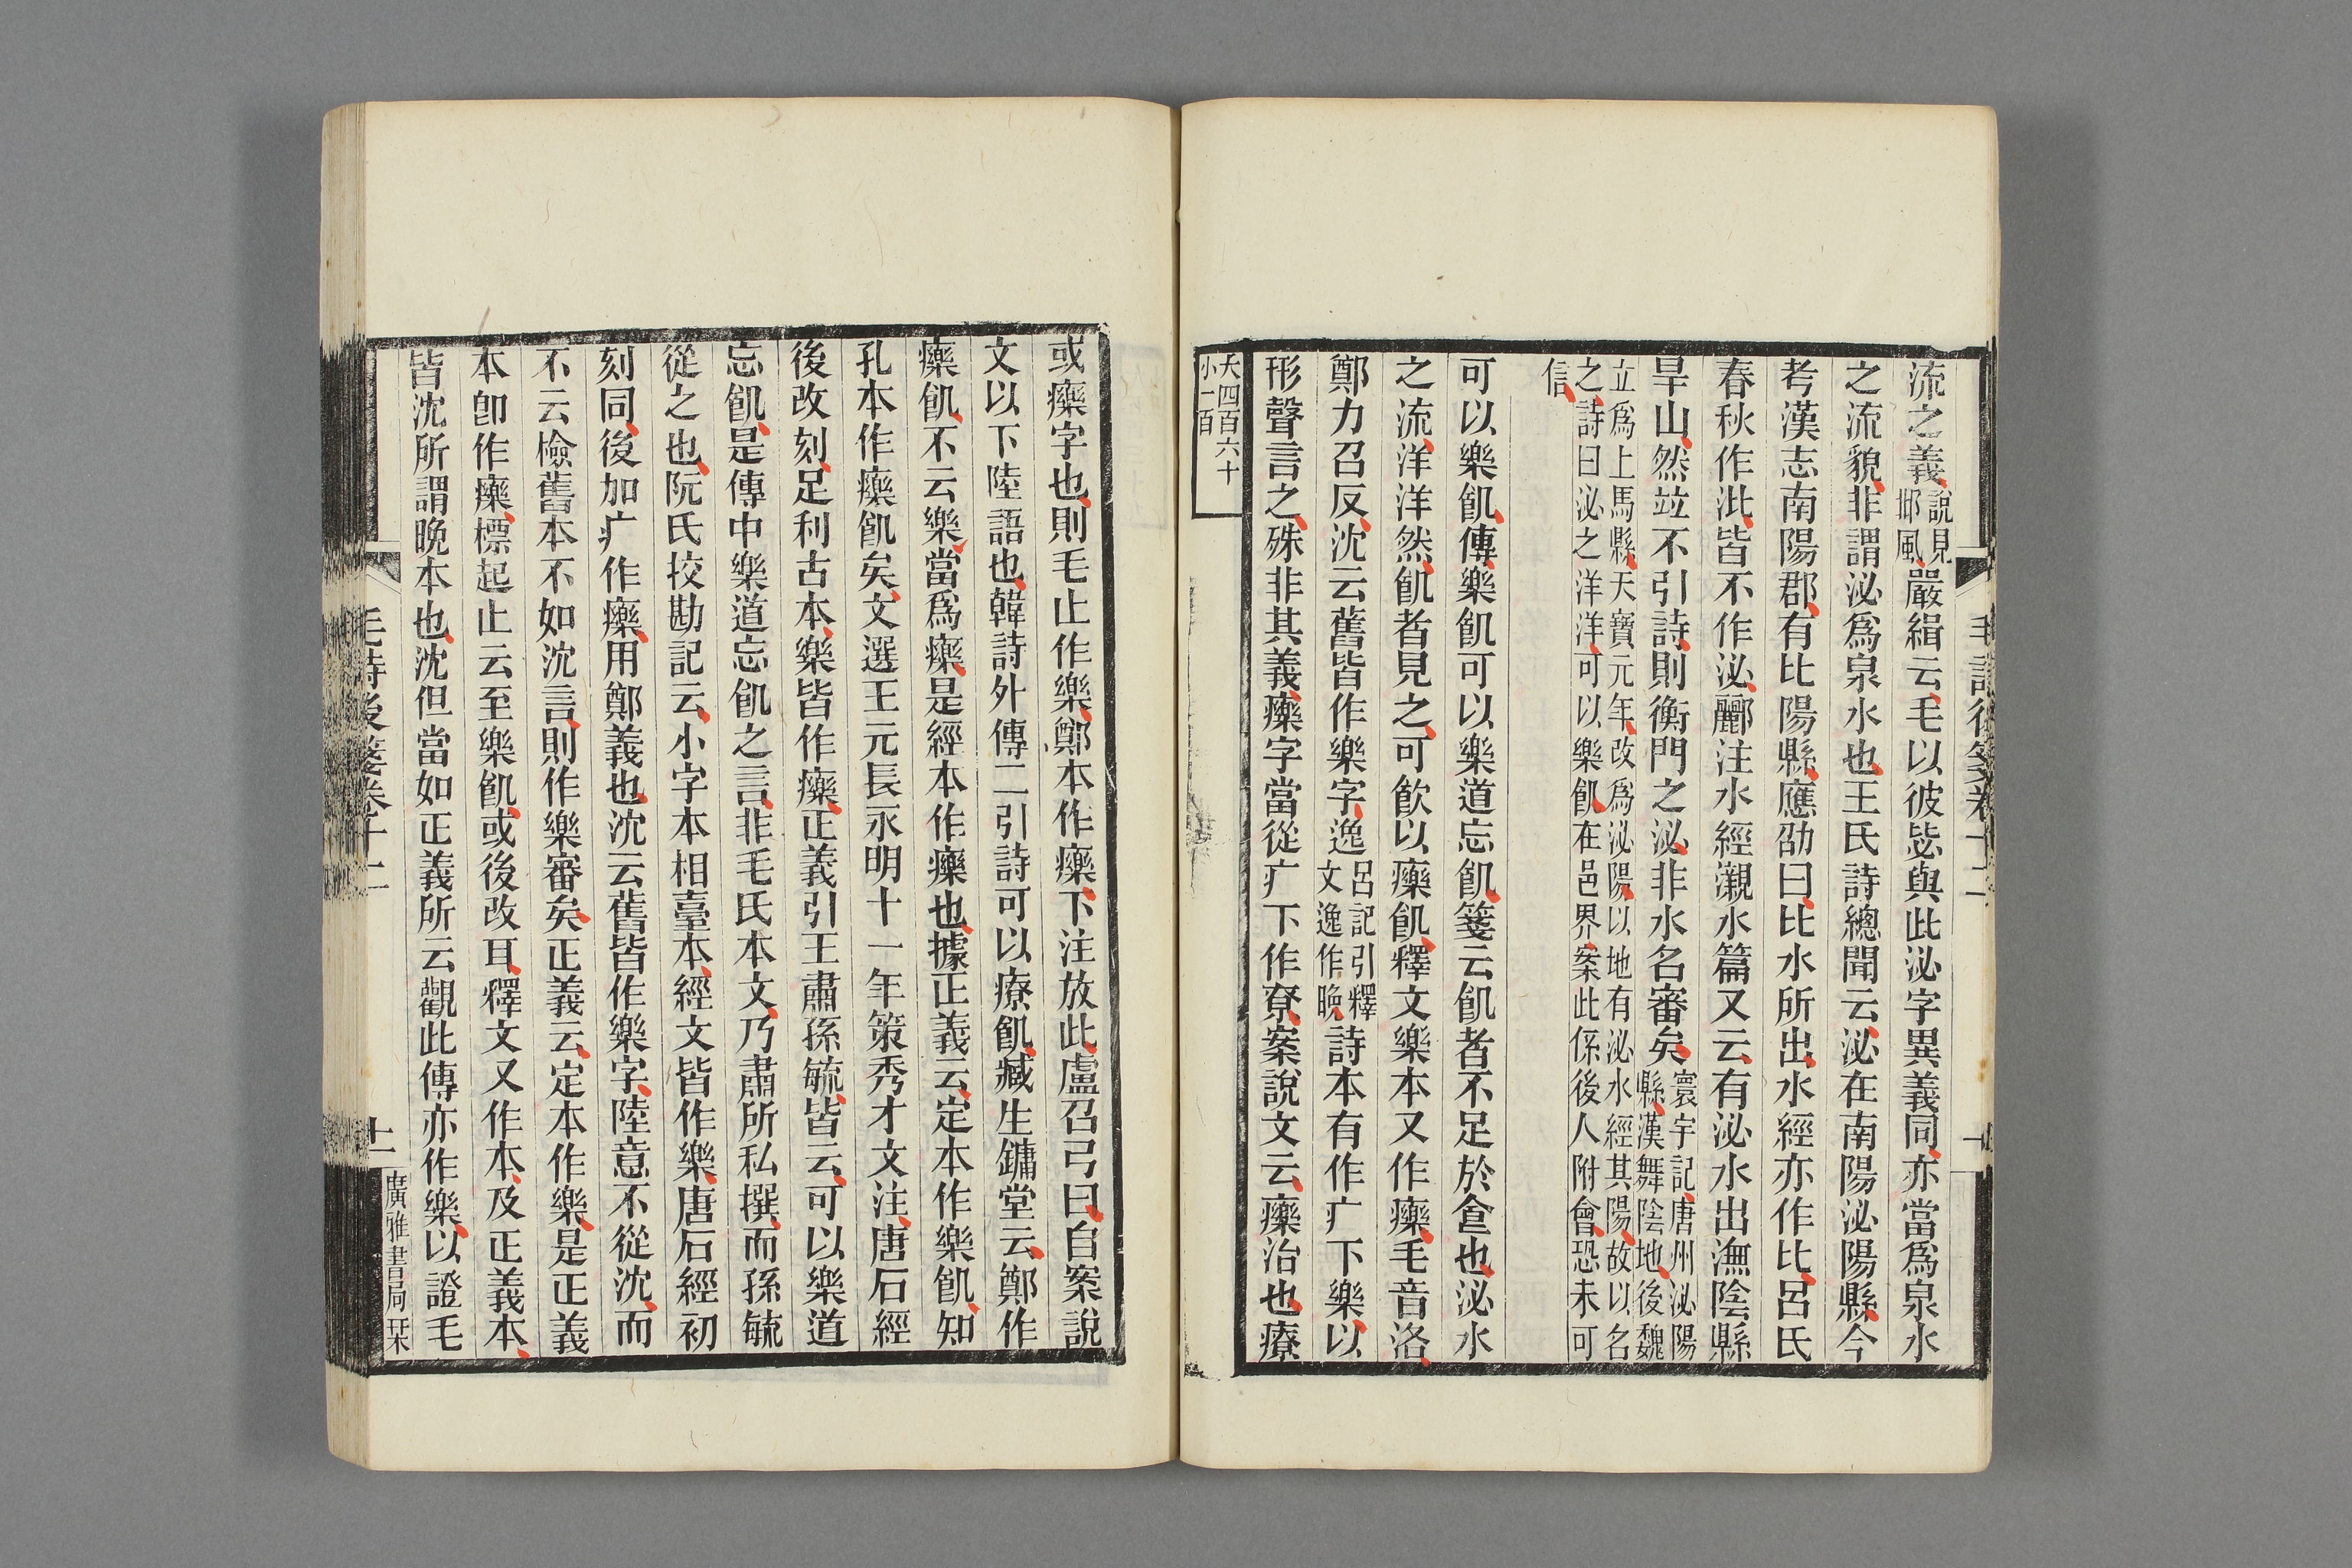 流之義說見邶風嚴緝云毛以彼毖與此泌字異義同亦當爲泉水
之流貌非謂泌爲泉水也王氏詩總聞云泌在南陽泌陽縣今
考漢志南陽郡有比陽縣應劭曰比水所出水經亦作比呂氏
春秋作沘皆不作泌酈注水經灈水篇又云有泌水出潕陰縣
旱山然竝不引詩則衡門之泌非水名審矣寰宇記唐州泌陽縣漢舞陰地後魏
立爲上馬縣天寶元年改爲泌陽以地有泌水經其陽故以名
之詩曰泌之洋洋可以樂飢在邑界案此係後人附會恐未可
信
可以樂飢傳樂飢可以樂道忘飢箋云飢者不足於食也泌水
之流洋洋然飢者見之可飲以㿋飢釋文樂本又作㿋毛音洛
鄭力召反沈云舊皆作樂字逸呂記引釋文逸作晚詩本有作疒下樂以
形聲言之殊非其義㿋字當從疒下作尞案說文云㿋治也療
大四百六十
小一百
毛詩後箋卷十二
或㿋字也則毛止作樂鄭本作㿋下注放此盧召弓曰自案說
文以下陸語也韓詩外傳二引詩可以療飢臧生鏞堂云鄭作
㿋飢不云樂當爲㿋是經本作㿋也據正義云定本作樂飢知
孔本作㿋飢矣文選王元長永明十一年策秀才文注唐石經
後改刻足利古本樂皆作㿋正義引王肅孫毓皆云可以樂道
忘飢是傳中樂道忘飢之言非毛氏本文乃肅所私撰而孫毓
從之也阮氏挍勘記云小字本相臺本經文皆作樂唐石經初
刻同後加疒作㿋用鄭義也沈云舊皆作樂字陸意不從沈而
不云檢舊本不如沈言則作樂審矣正義云定本作樂是正義
本卽作㿋標起止云至樂飢或後改耳釋文又作本及正義本
皆沈所謂晚本也沈但當如正義所云觀此傳亦作樂以證毛
毛詩後箋卷十二
十一
廣雅書局栞